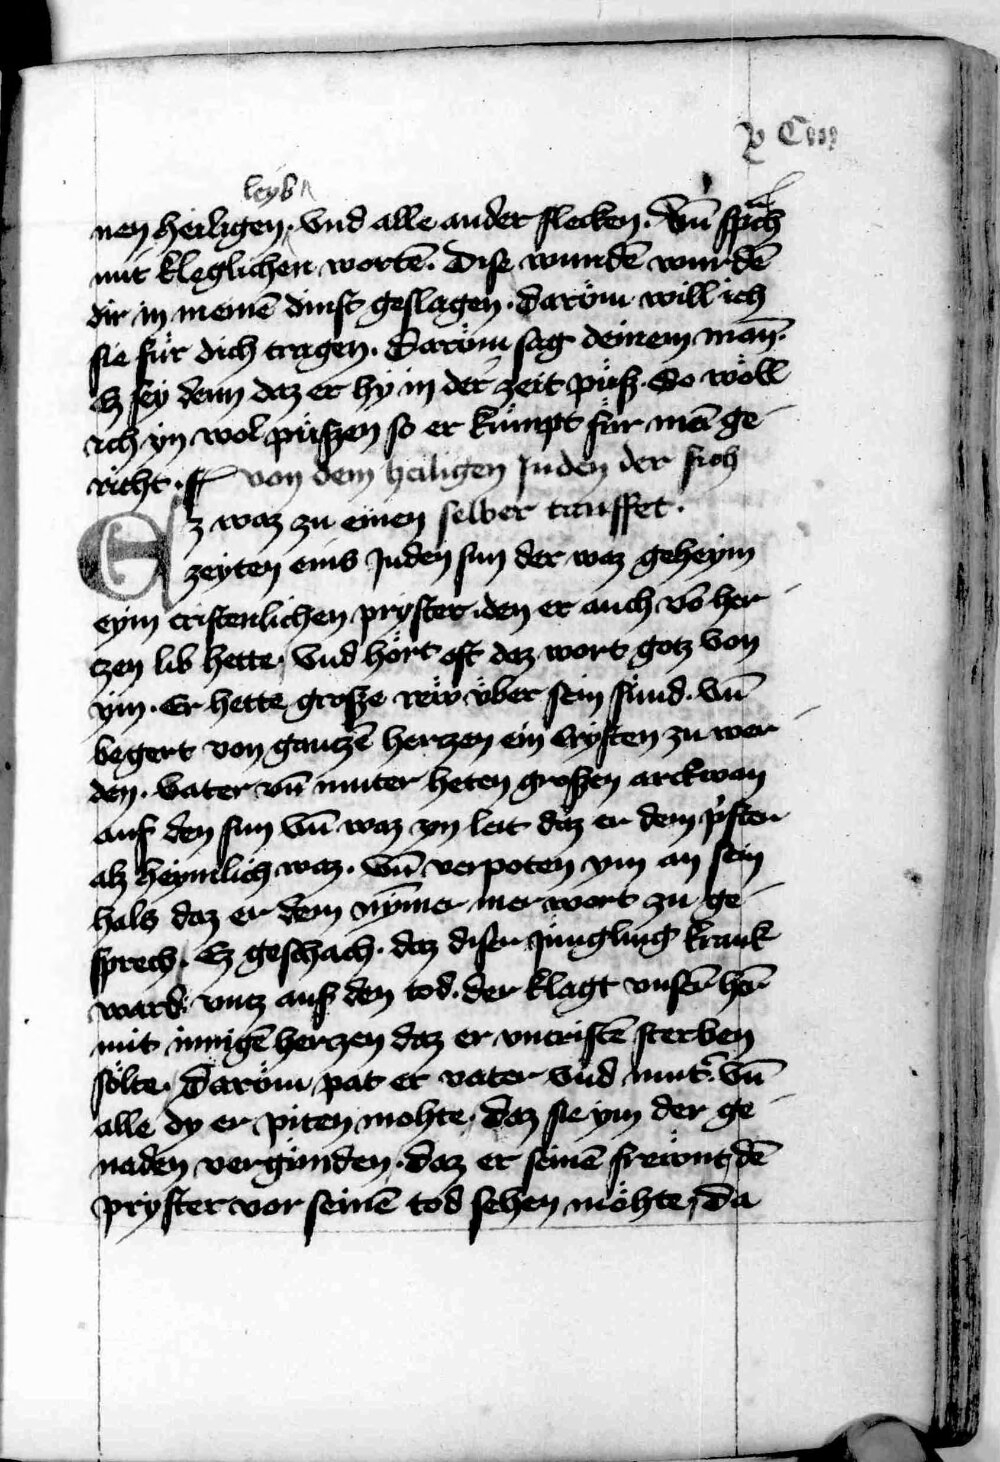 leyb
nen heiligen. vnd alle ander flecken. Vn̄ sp̄ch
mit kleglichen wortē. Dise wundē wurdē
dir in meinē dinst geslagen. Daröm will ich
sie für dich tragen. Daröm sag deinem man̄.
Ez sey denn daz er hy in der zeit püsz. So wöll
ich yn wol püszen so er kümpt für mēi ge-
richt. von dem heiligen Juden der sich
Ez waz zu einen selber tauffet.
zeyten eins Juden sun der waz geheym
eym cristenlichen pryster. den er auch vō her-
tzen lib hette. Vnd hört oft daz wort gotz von
ym. Er hette grosze rew über sein sünd. vn̄
begert von gantzē herzen ein crysten zu wer-
den. Vater vn̄ muter heten groszen arckwan
auf den sun vn̄ waz yn leit daz er dem p̓ster
alz heymlich waz. Vn̄ verpoten ym an sein
hals daz er dem nȳmer mer wort zu ge-
sprech. Ez geschach. daz diser jüngling krank
ward. vntz auf den tod. der klagt vnserē hēr
mit innigē herzen daz er vncristē sterben
sölte. Daröm pat er vater vnd mut̓. vn̄
alle dy er piten mohte. Daz sie ym der ge-
naden vergünden. daz er seinē freẅnt dē
pryster vor seinē tod sehen möhte. Da